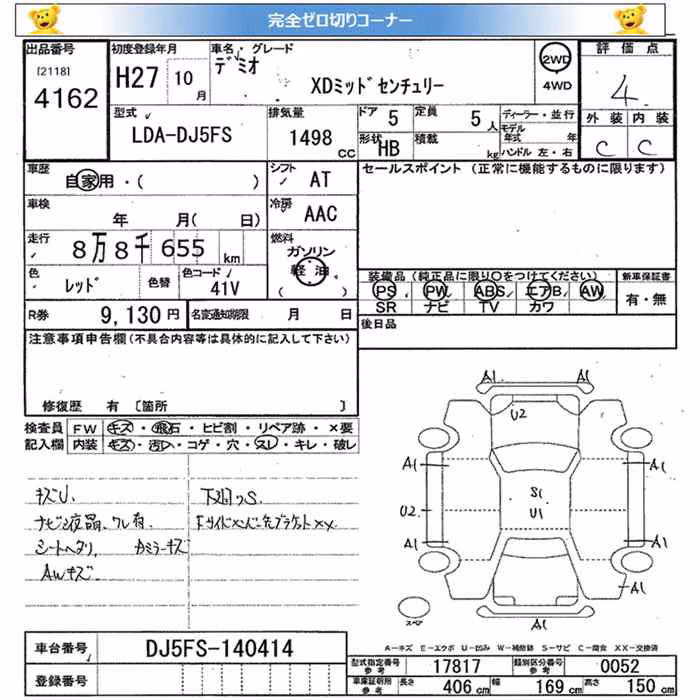 完全ゼロ切りコーナー
出品番号 初度登録年月 車名 グレード 評価点
[2118] 4162 H27 10月 デミオ XDミッドセンチュリー 2WD 4WD 4
型式 排気量 ドア 5 定員 5人 ディーラー・並行 外装 内装
LDA-DJ5FS 1498 CC 形状 HB 積載 kg モデル年式 年 C C
ハンドル 左・右
車歴 自家用・( ) シフト AT セールスポイント (正常に機能するものに限ります)
車検 年 月( 日) 冷房 AAC
走行 8万8千655 km 燃料 ガソリン 軽油 ( )
色 レッド 色替 色コード 41V 装備品(純正品に限り○をつけてください) 新車保証書
PS PW ABS エアB AW 有・無
SR ナビ TV カワ
R券 9,130円 名変通知期限 月 日 後日品
注意事項申告欄(不具合内容等は具体的に記入して下さい)
修復歴 有 〔箇所 〕
検査員 FW キズ・飛石・ヒビ割・リペア跡・×要
記入欄 内装 キズ・汚れ・コゲ・穴・スレ・キレ・破レ
A1 A1
U2
A1 A1
S1
U1
U2
A1 A1
A1
A1
スペア
キズU. 下廻りS.
ナビ液晶、ワレ有.
シートヘタリ. カミラーキズ
AWキズ.
A-キズ E-エクボ U-凹み W-補修跡 S-サビ C-腐食 XX-交換済
車台番号 DJ5FS-140414
型式指定番号 参考 17817 類別区分番号 参考 0052
登録番号 車庫証明用 参考 長さ 406 cm 幅 169 cm 高さ 150 cm